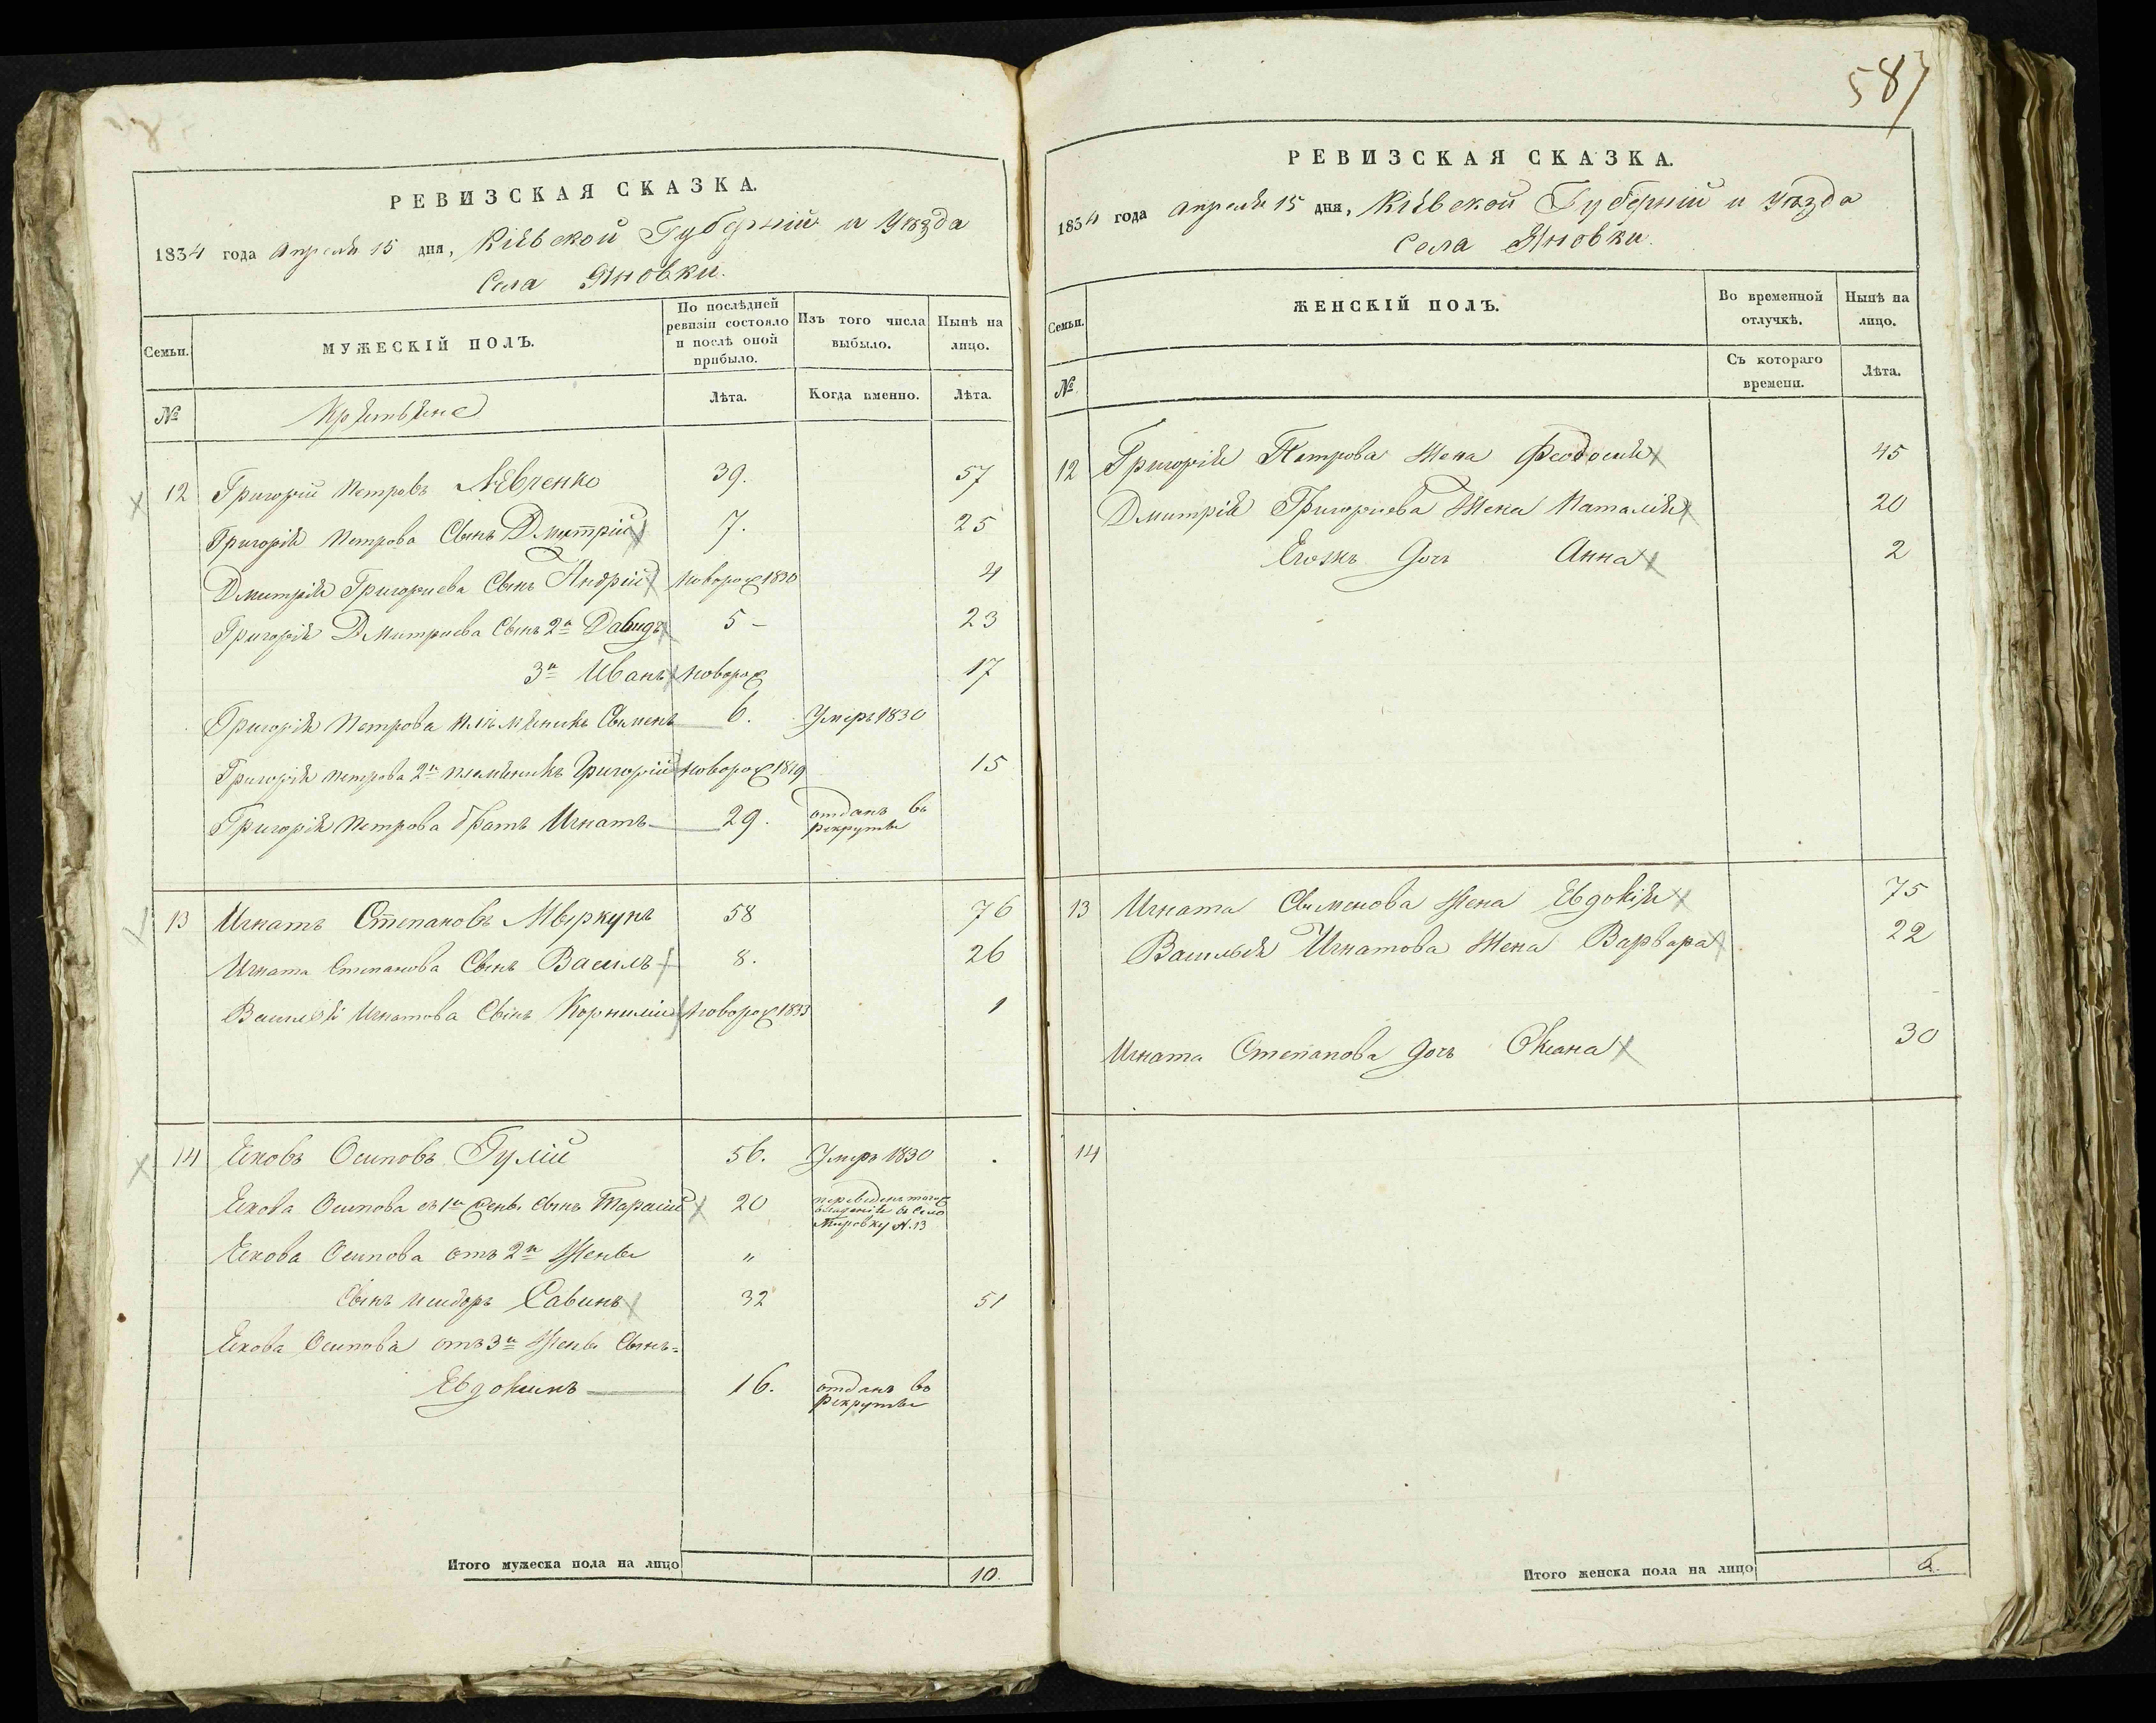 587
РЕВИЗСКАЯ СКАЗКА.
1834 года Апреля 15 дня, Кіевской Губерніи и Уѣзда
Села Яновки.
Семьи.
МУЖЕСКІЙ ПОЛЪ.
По послѣдней
ревизіи состояло
и послѣ оной
прибыло.
Изъ того числа
выбыло.
Нынѣ на
лицо.
№
Лѣта.
Когда именно.
Лѣта.
12 Григорій Петровъ Левченко 39. 57
Григорія Петрова Сынъ Дмитрій 7. 25
Дмитрія Григориева Сынъ Андрій новорож 1830 4
Григорія Дмитриева Сынъ 2й Давидъ 5 - 23
3й Иванъ новорож 17
Григорія Петрова племѣникъ Сименъ 6. Умеръ 1830
Григорія Петрова 2й племѣникъ Григорій новорож 1819 15
Григорія Петрова братъ Игнатъ 29. отданъ во
рекруты
13 Игнатъ Степановъ 58 76
Игната Степанова Сынъ Василь 8. 26
Василія Игнатова Сынъ Корнилій новорож 1833 1
14 Яковъ Осиповъ Гулій 56. Умеръ 1830 .
Якова Осипова съ 1й жены Сынъ Тарасій 20
въ село
№. 13
Якова Осипова отъ 2й Жены "
Сынъ Савинъ 32 51
Якова Осипова отъ 3й Жены Сынъ =
Евдокимъ 16. отданъ во
рекруты
Итого мужеска пола на лицо 10.
РЕВИЗСКАЯ СКАЗКА.
1834 года Апреля 15 дня, Кіевской Губерніи и Уѣзда
Села Яновки.
Семьи.
ЖЕНСКІЙ ПОЛЪ.
Во временной
отлучкѣ.
Нынѣ на
лицо.
№
Съ котораго
времени.
Лѣта.
12 Григорія Петрова Жена Феодосія 45
Дмитрія Григориева Жена Наталія 20
Егожъ дочь Анна 2
13 Игната Сименова Жена Евдокія 75
Василья Игнатова Жена Варвара 22
Игната Степанова дочь Оксана 30
14
Итого женска пола на лицо 6.